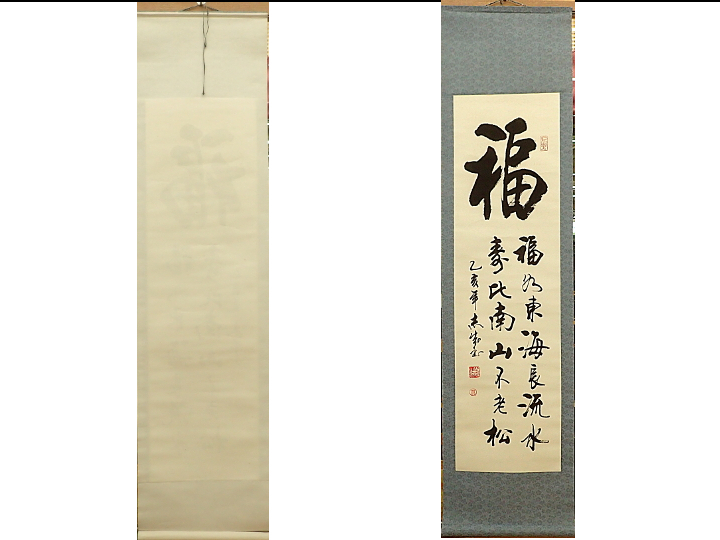 福
福如東海長流水
壽比南山不老松
乙亥年